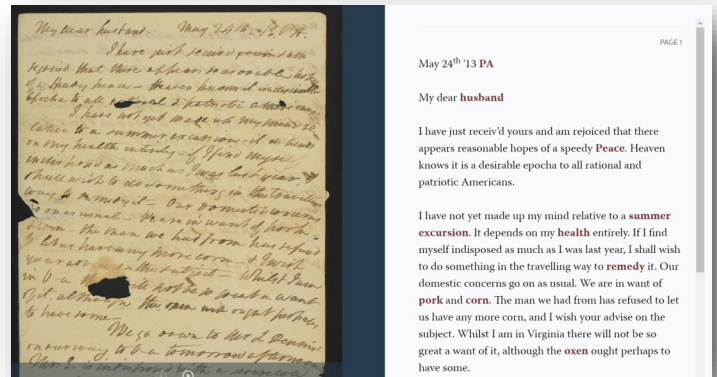 My dear husband. May 24th. /13. PA.
I have just receiv'd yours & am
rejoiced that there appears reasonable hope
of a speedy peace - Heaven knows it is desirable
epocha to all rational & patriotic Americans
I have not yet made up my mind re
lative to a summer excursion - it depends
on my health intirely - if I find myself
indisposed as much as I was last year, I
shall wish to do something in the travelling
way to remedy it - Our domestic concerns
go on as usual - we are in want of pork
corn - the man we had from has refus'd
to let us have any more corn - & I wish
your advise on the subject - Whilst I am
in V-a there will not be so great a want
of it, although the oxen will ought perhaps
to have some
We go down to Mr L Dennis
on our way to V-a tomorrow afternoon
Mrs E. is indisposed with a severe cold
PAGE 1
May 24th '13 PA
My dear husband
I have just receiv'd yours and am rejoiced that there
appears reasonable hopes of a speedy Peace. Heaven
knows it is a desirable epocha to all rational and
patriotic Americans.
I have not yet made up my mind relative to a summer
excursion. It depends on my health entirely. If I find
myself indisposed as much as I was last year, I shall wish
to do something in the travelling way to remedy it. Our
domestic concerns go on as usual. We are in want of
pork and corn. The man we had from has refused to let
us have any more corn, and I wish your advise on the
subject. Whilst I am in Virginia there will not be so
great a want of it, although the oxen ought perhaps to
have some.